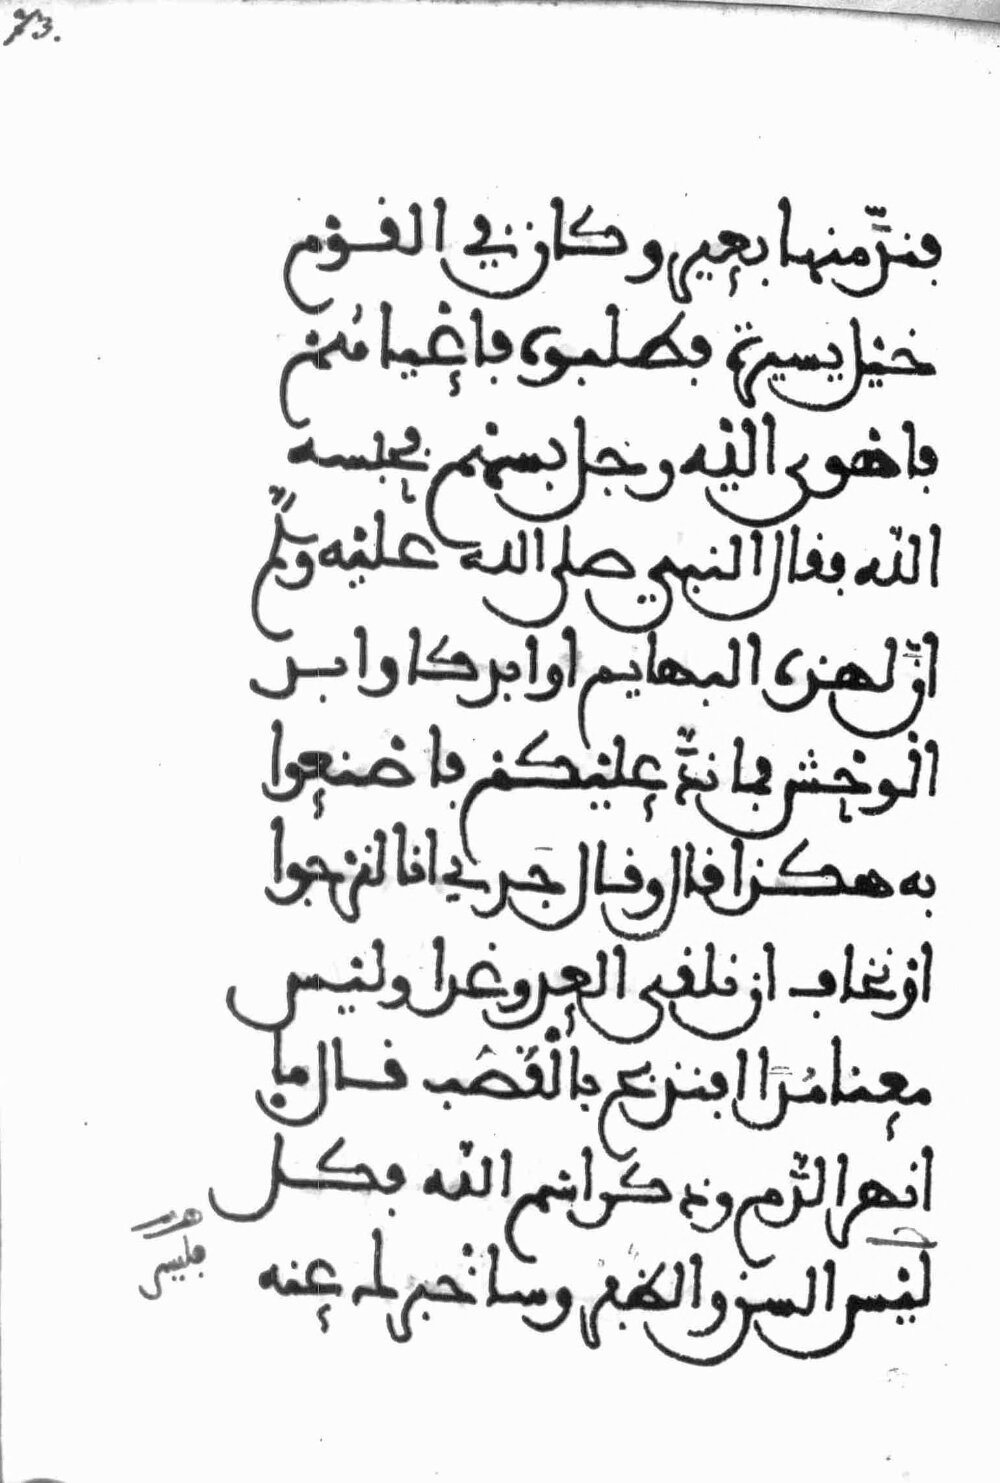 73.
فندّ منها بعير وكان في القوم
خيل يسيرة فطلبوه فاعياهم
فاهوى اليه رجل بسهم فحبسه
الله فقال النبي صلى الله عليه وسلم
ان لهذه البهايم اوابد كاوابد
الوحش فما ندّ عليكم فاصنعوا
به هكذا قال وقال جدي انا لنرجوا
او نخاف ان نلقى العدو غدا وليس
معنا مُدًا افنذبح بالقصب فقال ما
انهر الدّم وذكر اسم الله فكل
ليس السن والظفر وساخبر له عنه
فليس